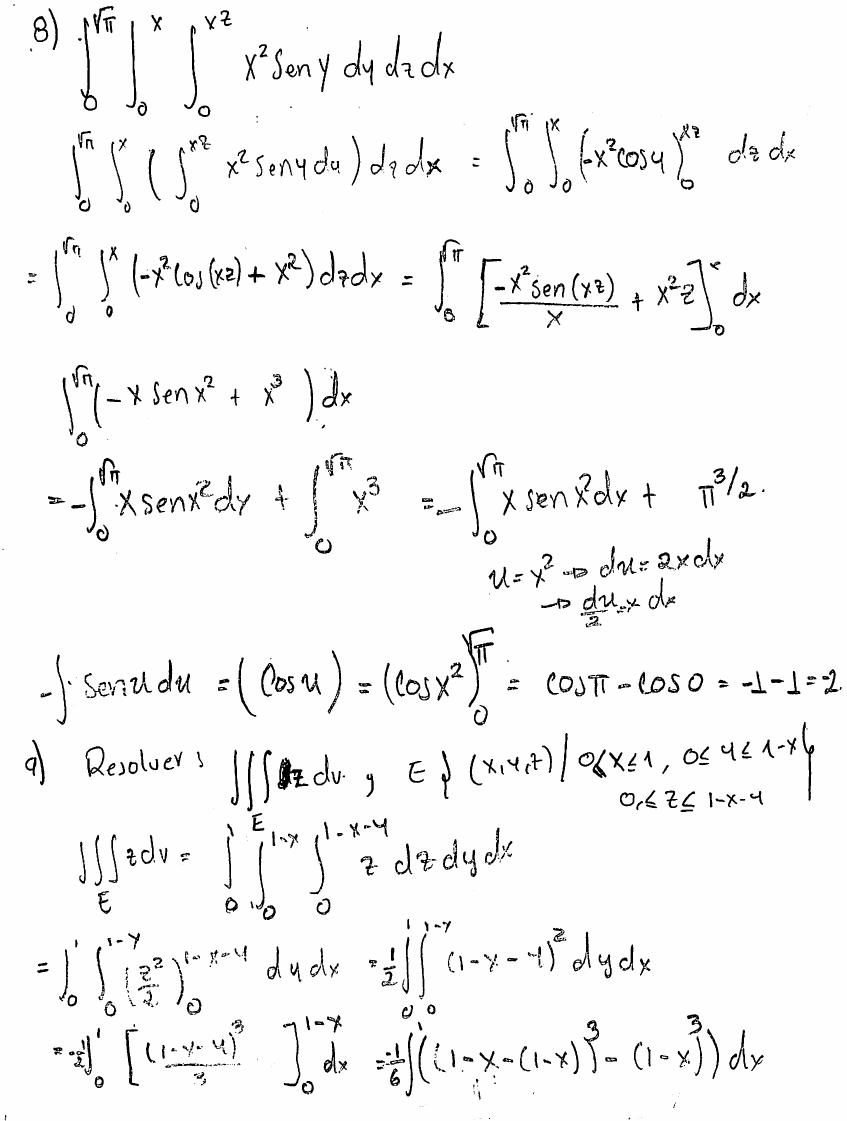 8) ∫₀^√π ∫₀^x ∫₀^xz x² Sen y dy dz dx
∫₀^√π ∫₀^x ( ∫₀^xz x² Sen y dy ) dz dx = ∫₀^√π ∫₀^x (-x² cos y)₀^xz dz dx
= ∫₀^√π ∫₀^x (-x² Cos (xz) + x²) dz dx = ∫₀^√π [ -x² sen (xz) / x + x² z ]₀^x dx
∫₀^√π (- x Sen x² + x³ ) dx
= - ∫₀^√π x sen x² dy + ∫₀^√π x³ = - ∫₀^√π x sen x² dx + π^3/2.
u = x² → du = 2x dx
→ du/2 = x dx
- ∫ sen u du = ( Cos u ) = (Cos x²)₀^√π = cos π - cos 0 = -1 - 1 = -2
9) Resolver: ∫∫∫_E z dv. y E { (x,y,z) | 0≤x≤1, 0≤y≤1-x }
0≤z≤1-x-y
∫∫∫_E z dv = ∫₀^1 ∫₀^1-x ∫₀^1-x-y z dz dy dx
= ∫₀^1 ∫₀^1-x (z²/2)₀^1-x-y dy dx = 1/2 ∫₀^1 ∫₀^1-x (1-x-y)² dy dx
= -1/2 ∫₀^1 [ (1-x-y)³ / 3 ]₀^1-x dx = -1/6 ∫^1 ((1-x-(1-x))³ - (1-x)³) dx